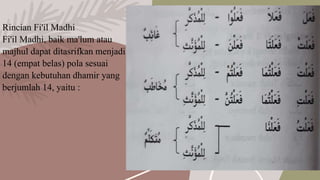 Rincian Fi'il Madhi
Fi'il Madhi, baik ma'lum atau
majhul dapat ditasrifkan menjadi
14 (empat belas) pola sesuai
dengan kebutuhan dhamir yang
berjumlah 14, yaitu :
فَعَلَ فَعَلَا فَعَلُوْا - لِلْمُذَكَّرِ
غَائِبٌ
فَعَلَتْ فَعَلَتَا فَعَلْنَ - لِلْمُؤَنَّثِ
فَعَلْتَ فَعَلْتُمَا فَعَلْتُمْ - لِلْمُذَكَّرِ
مُخَاطَبٌ
فَعَلْتِ فَعَلْتُمَا فَعَلْتُنَّ - لِلْمُؤَنَّثِ
لِلْمُذَكَّرِ
فَعَلْتُ فَعَلْنَا مُتَكَلِّمٌ
لِلْمُؤَنَّثِ